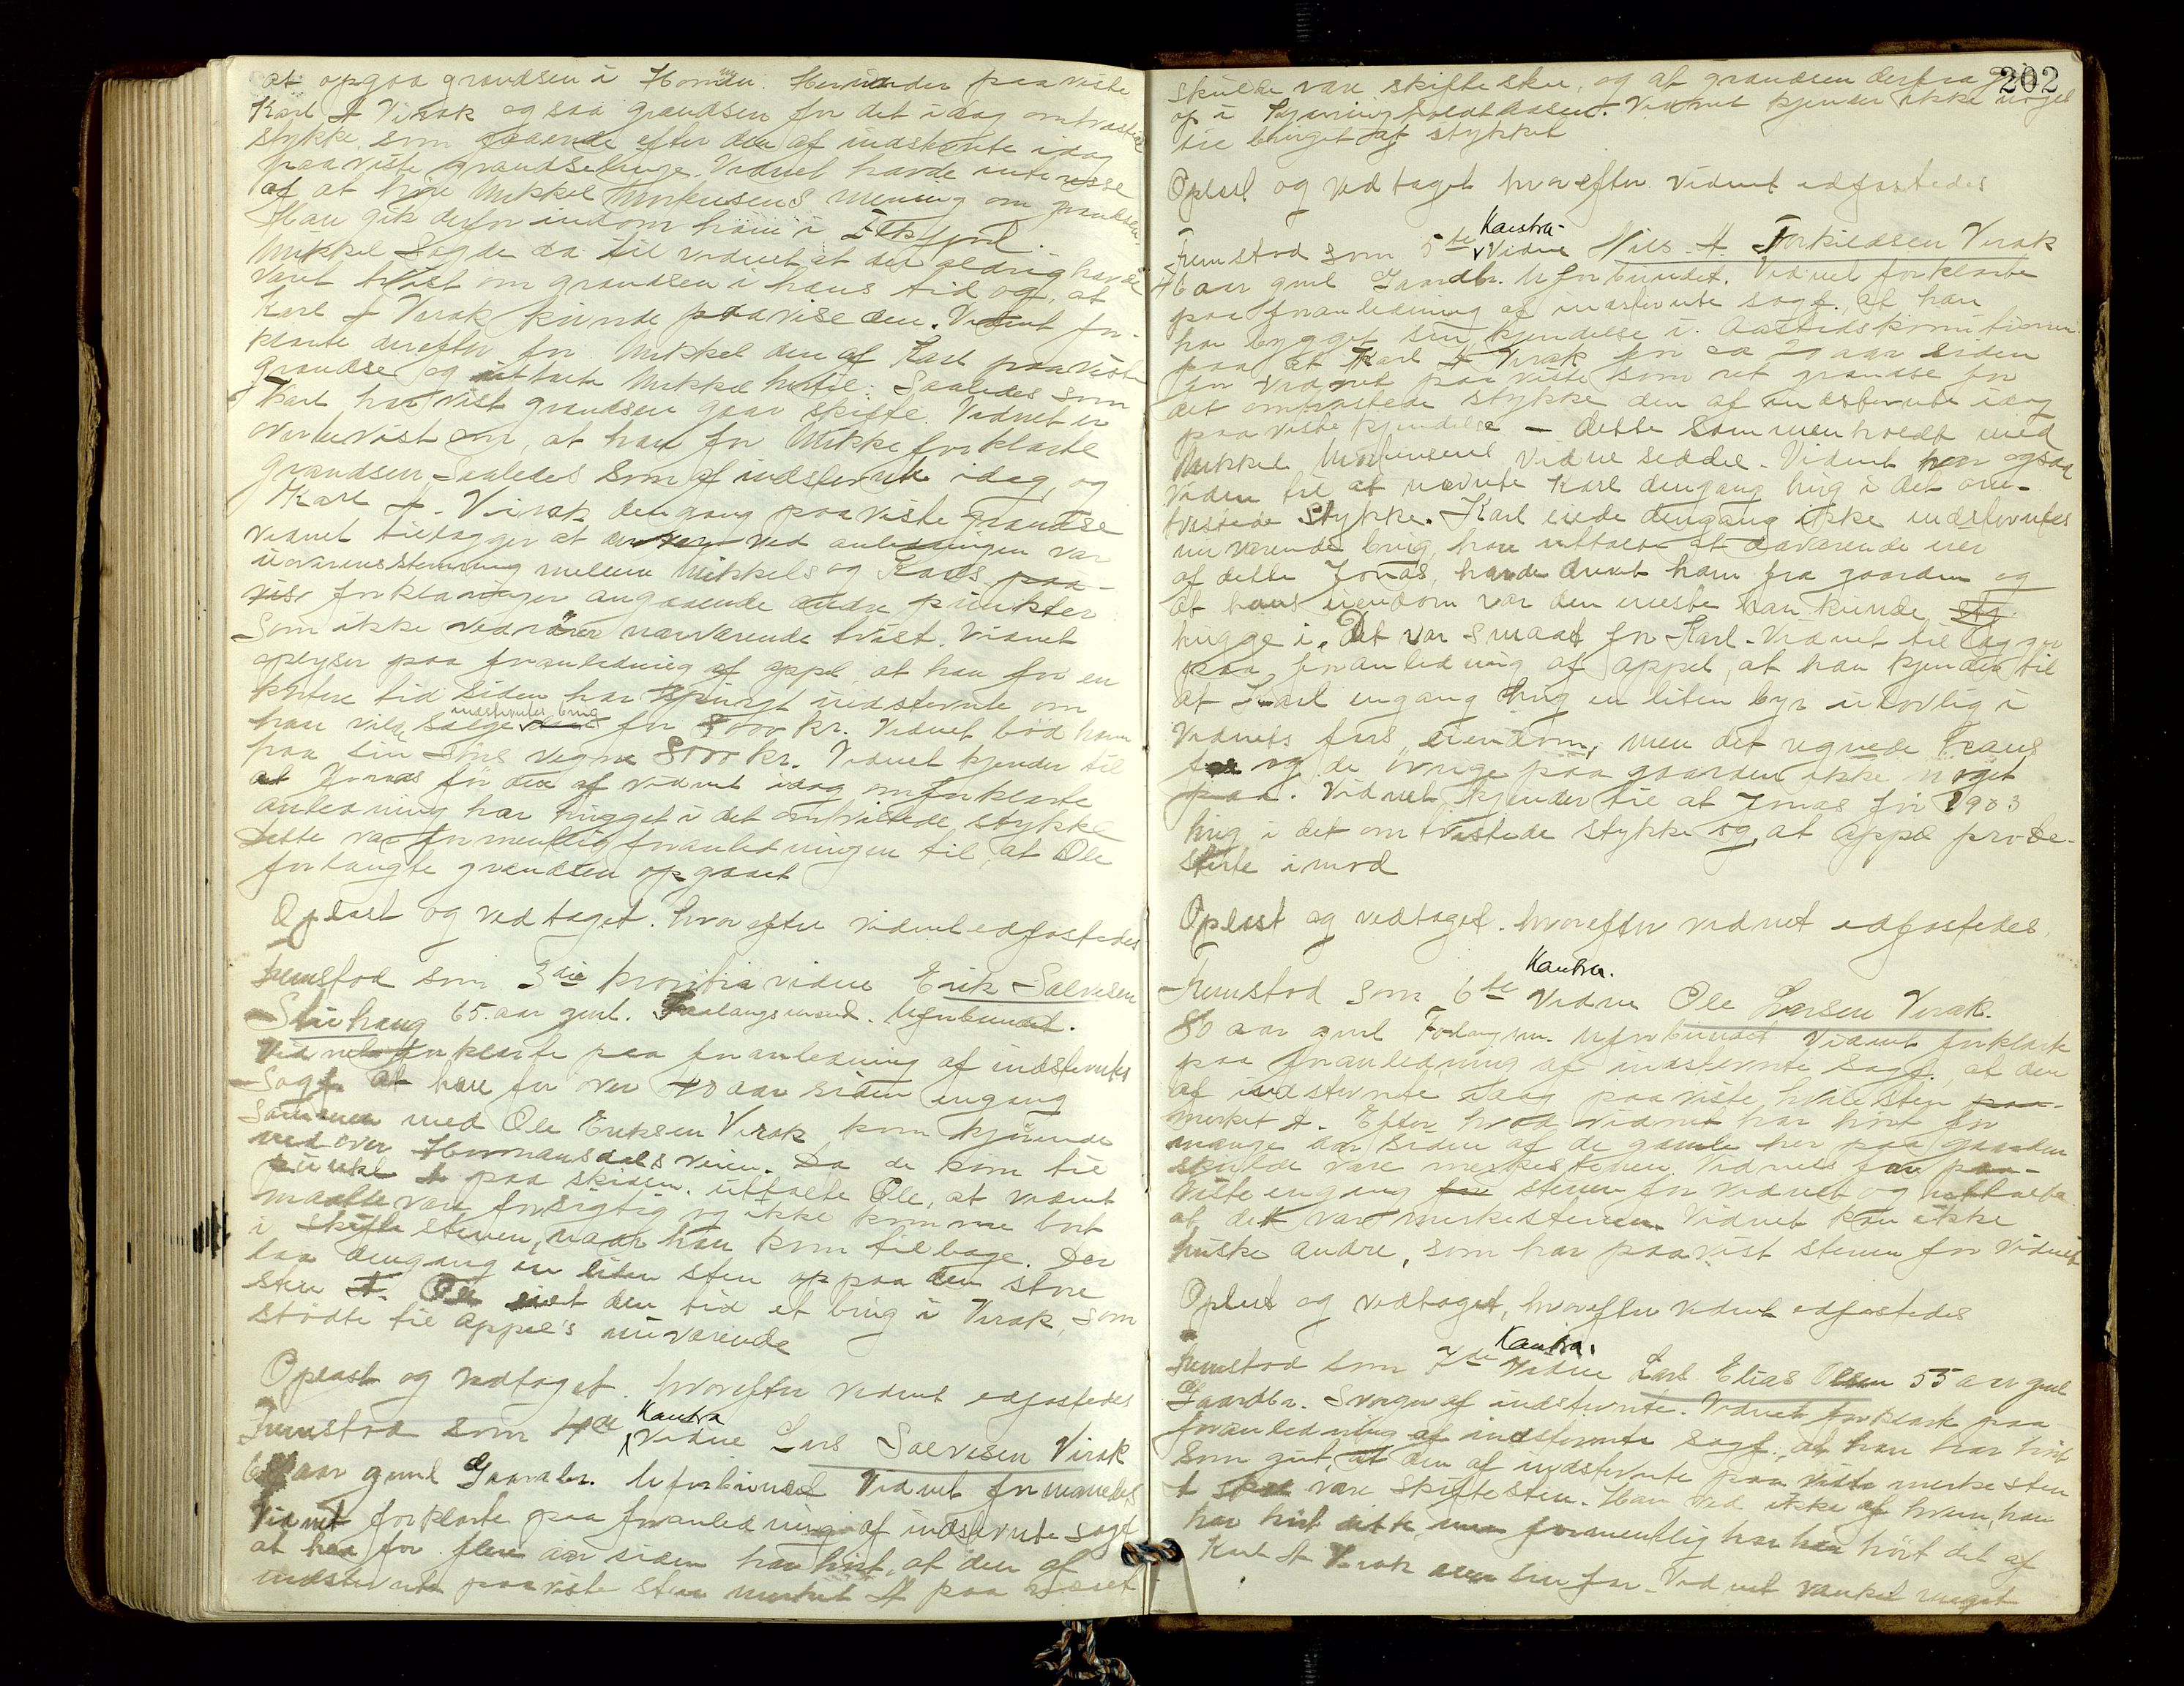 at opgaa grændsen i Homm. Herunder paaviste
Karl A Virak ogsaa grændsen for det idag omtvistede
stykke som gaaende efter den af indstevnte idag
paaviste grændselinje. Vidnet havde interesse
af at høre Mikkel Mortensens mening om grændsen.
Han gik derfor indom ham i
Mikkel sagde da til vidnet at det aldrig havde
vært tvist om grændsen i hans tid og, at
Karl A Virak kunde paavise den. Vidnet for-
klarte derefter for Mikkel den af Karl paaviste
grændse og uttalte Mikkel hertil: Saaledes som
Karl har vist grændsen gaar skifte. Vidnet er
overbevist om, at han for Mikkel forklarte
grændsen saaledes som af indstevnte idag, og
Karl A. Virak dengang paaviste grændse
vidnet tillægger at der ved anledningen var
uoverensstemning mellem Mikkels og Karls paa-
vis forklaringer angaaende andre punkter
som ikke vedrører nærværende tvist. Vidnet
oplyser paa foranledning af appl. at han for en
kortere tid siden har spurgt indstevnte om
han vilde sælge indstevntes brug for 8000 kr. Vidnet bød ham
paa sin søns vegne 8000 kr. Vidnet kjender til
at Jonas før den af vidnet idag omforklarte
anledning har hugget i det omtvistede stykke
Dette var formentlig foranledningen til, at Ole
forlangte grændsen opgaaet
Oplæst og vedtaget. hvorefter vidnet edfæstedes
Fremstod som 3die kontra vidne Erik Salvesen
65 aar gml. Ubeslægtet.
Vidnet forklarte paa foranledning af indstevntes
sagf. at han for over 40 aar siden engang
sammen med Ole Eriksen Virak kom kjørende
ned over Hermansdalsveien. Da de kom til
punkt A paa skissen, uttalte Ole, at vidnet
maatte være forsigtig og ikke komme bort
i skifte stenen, naar han kom tilbage. Der
laa dengang en liten sten op paa den store
sten A. Ole eiet den tid et brug i Virak, som
stødte til appel's nuværende
Oplæst og vedtaget. hvorefter vidnet edfæstedes
Fremstod som 4de Kontra Vidne Lars Salvesen Virak
aar gml Gaardbr. Uforbundet Vidnet formanedes
Vidnet forklarte paa foranledning af indstevnte sagf
at han for flere aar siden har hørt, at den af
indstevnte paaviste sten merket A paa risset
202
skulde være skiftesten, og at grændsen derfra gik
op i Vidnet kjender ikke noget
til bruget af stykket
Oplæst og vedtaget hvorefter vidnet edfæstedes
Fremstod som 5te Kontra- Vidne Nils A. Torkildsen Virak
46 aar gml Gaardbr. Uforbundet. Vidnet forklarte
paa foranledning af indstevnte sagf. at han
har bygget sin kjendelse i
paa at Karl A Virak for ca 20 aar siden
for vidnet paaviste som ret grændse for
det omtvistede stykke den af indstevnte idag
paaviste kjendelse – dette sammenholdt med
Mikkel Mortensens vidne seddel. Vidnet har ogsaa
viden til at nævnte Karl dengang hug i det om-
tvistede stykke. Karl eiede dengang ikke indstevntes
nuværende brug, han uttalte at daværende eier
af dette Jonas, havde drevet ham fra gaarden og
at hans eiendom var den eneste han kunde
hugge i. Det var smaat for Karl. Vidnet tillægger
paa foranledning af appel, at han kjender til
at Karl engang hug en liten byr ulovlig i
Vidnets fars eiendom, men det regnede hans
far og de øvrige paa gaarden ikke noget
paa. Vidnet kjender til at Jonas før 1903
hug i det omtvistede stykke og, at appel prote-
sterte imod
Oplæst og vedtaget. hvorefter vidnet edfæstedes.
Fremstod som 6te Kontra. Vidne Ole Larsen Virak.
80 aar gml Uforbundet Vidnet forklarte
paa foranledning af indstevnte sagf. at den
af indstevnte idag paaviste hvile sten paa-
merket A. Efter hvad vidnet har hørt for
mange aar siden af de gamle her paa gaarden
skulde være merkestenen. Vidnets far paa-
viste engang for stenen for vidnet og uttalte
at det var merkestenen. Vidnet kan ikke
huske andre, som har paavist stenen for vidnet
Oplæst og vedtaget, hvorefter vidnet edfæstedes
Fremstod som 7de Kontra. Vidne Karl Elias Olsen 55 aar gml
Gaardbr. Svoger af indstevnte. Vidnet forklarte paa
foranledning af indstevnte sagf. at han har hørt
som gut, at den af indstevnte paaviste merkesten
A skal være skiftesten. Han ved ikke af hvem, han
har hørt formentlig har han hørt det af
Karl A Virak Vidnet vanket meget